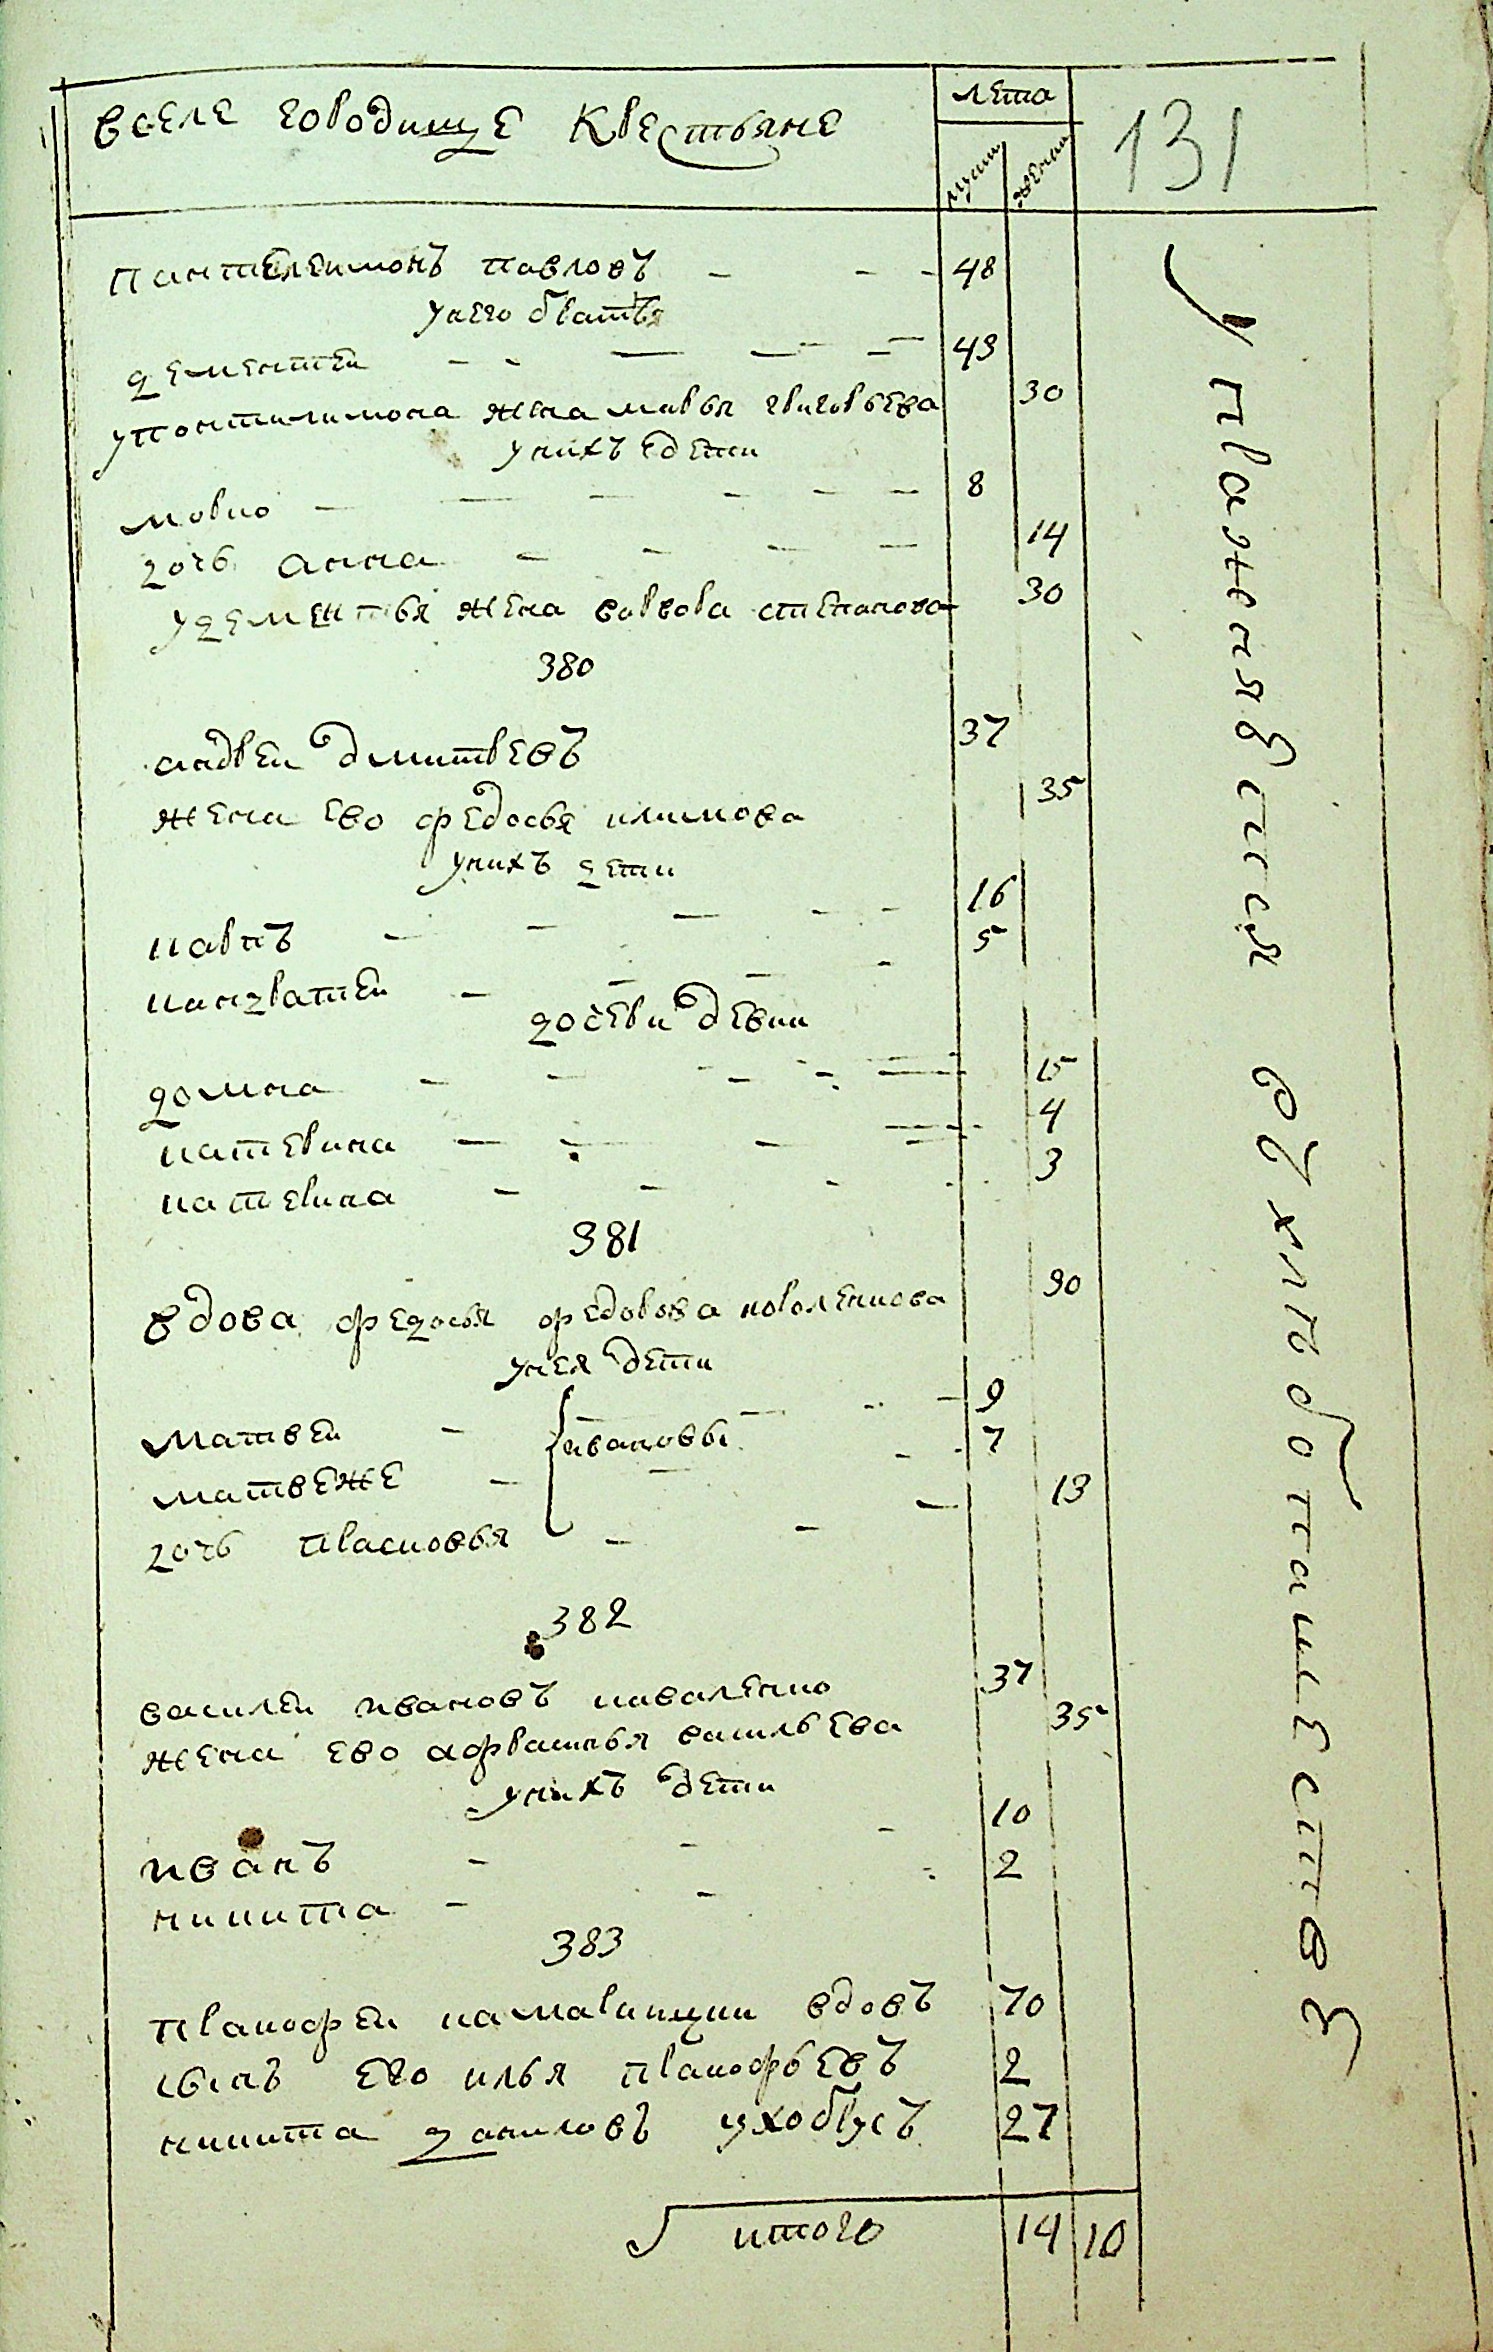 вселе городище Крестьяне
лета
мужи
женки
131
пантелеимонъ павловъ - - - 48
унего братья
дементеи - - - - - 43
упонтилимона жена мавра григорьева 30
унихъ дети
марко - - - - - - 8
дочь анна - - - - 14
удементья жена варвора степанова 30
380
андреи дмитревъ 37
жена ево федосья климова 35
унихъ дети
карпъ - - - - - 16
кандратеи - - - - 5
дочери девки
домна - - - - - 15
катерина - - - - 4
катерина - - - - 3
381
вдова федосья федорова коваленкова 30
унея дети
матвеи - - - - 9
ивановы
матвеже - - - - 7
дочь прасковья - - - 13
382
василеи ивановъ коваленко 37
жена ево афрасинья васильева 35
унихъ дети
иванъ - - - - 10
никита - - 2
383
пракофеи камарицкии вдовъ 70
сынъ его илья пракофьевъ 2
никита даниловъ ухобусъ 27
итого 14 10